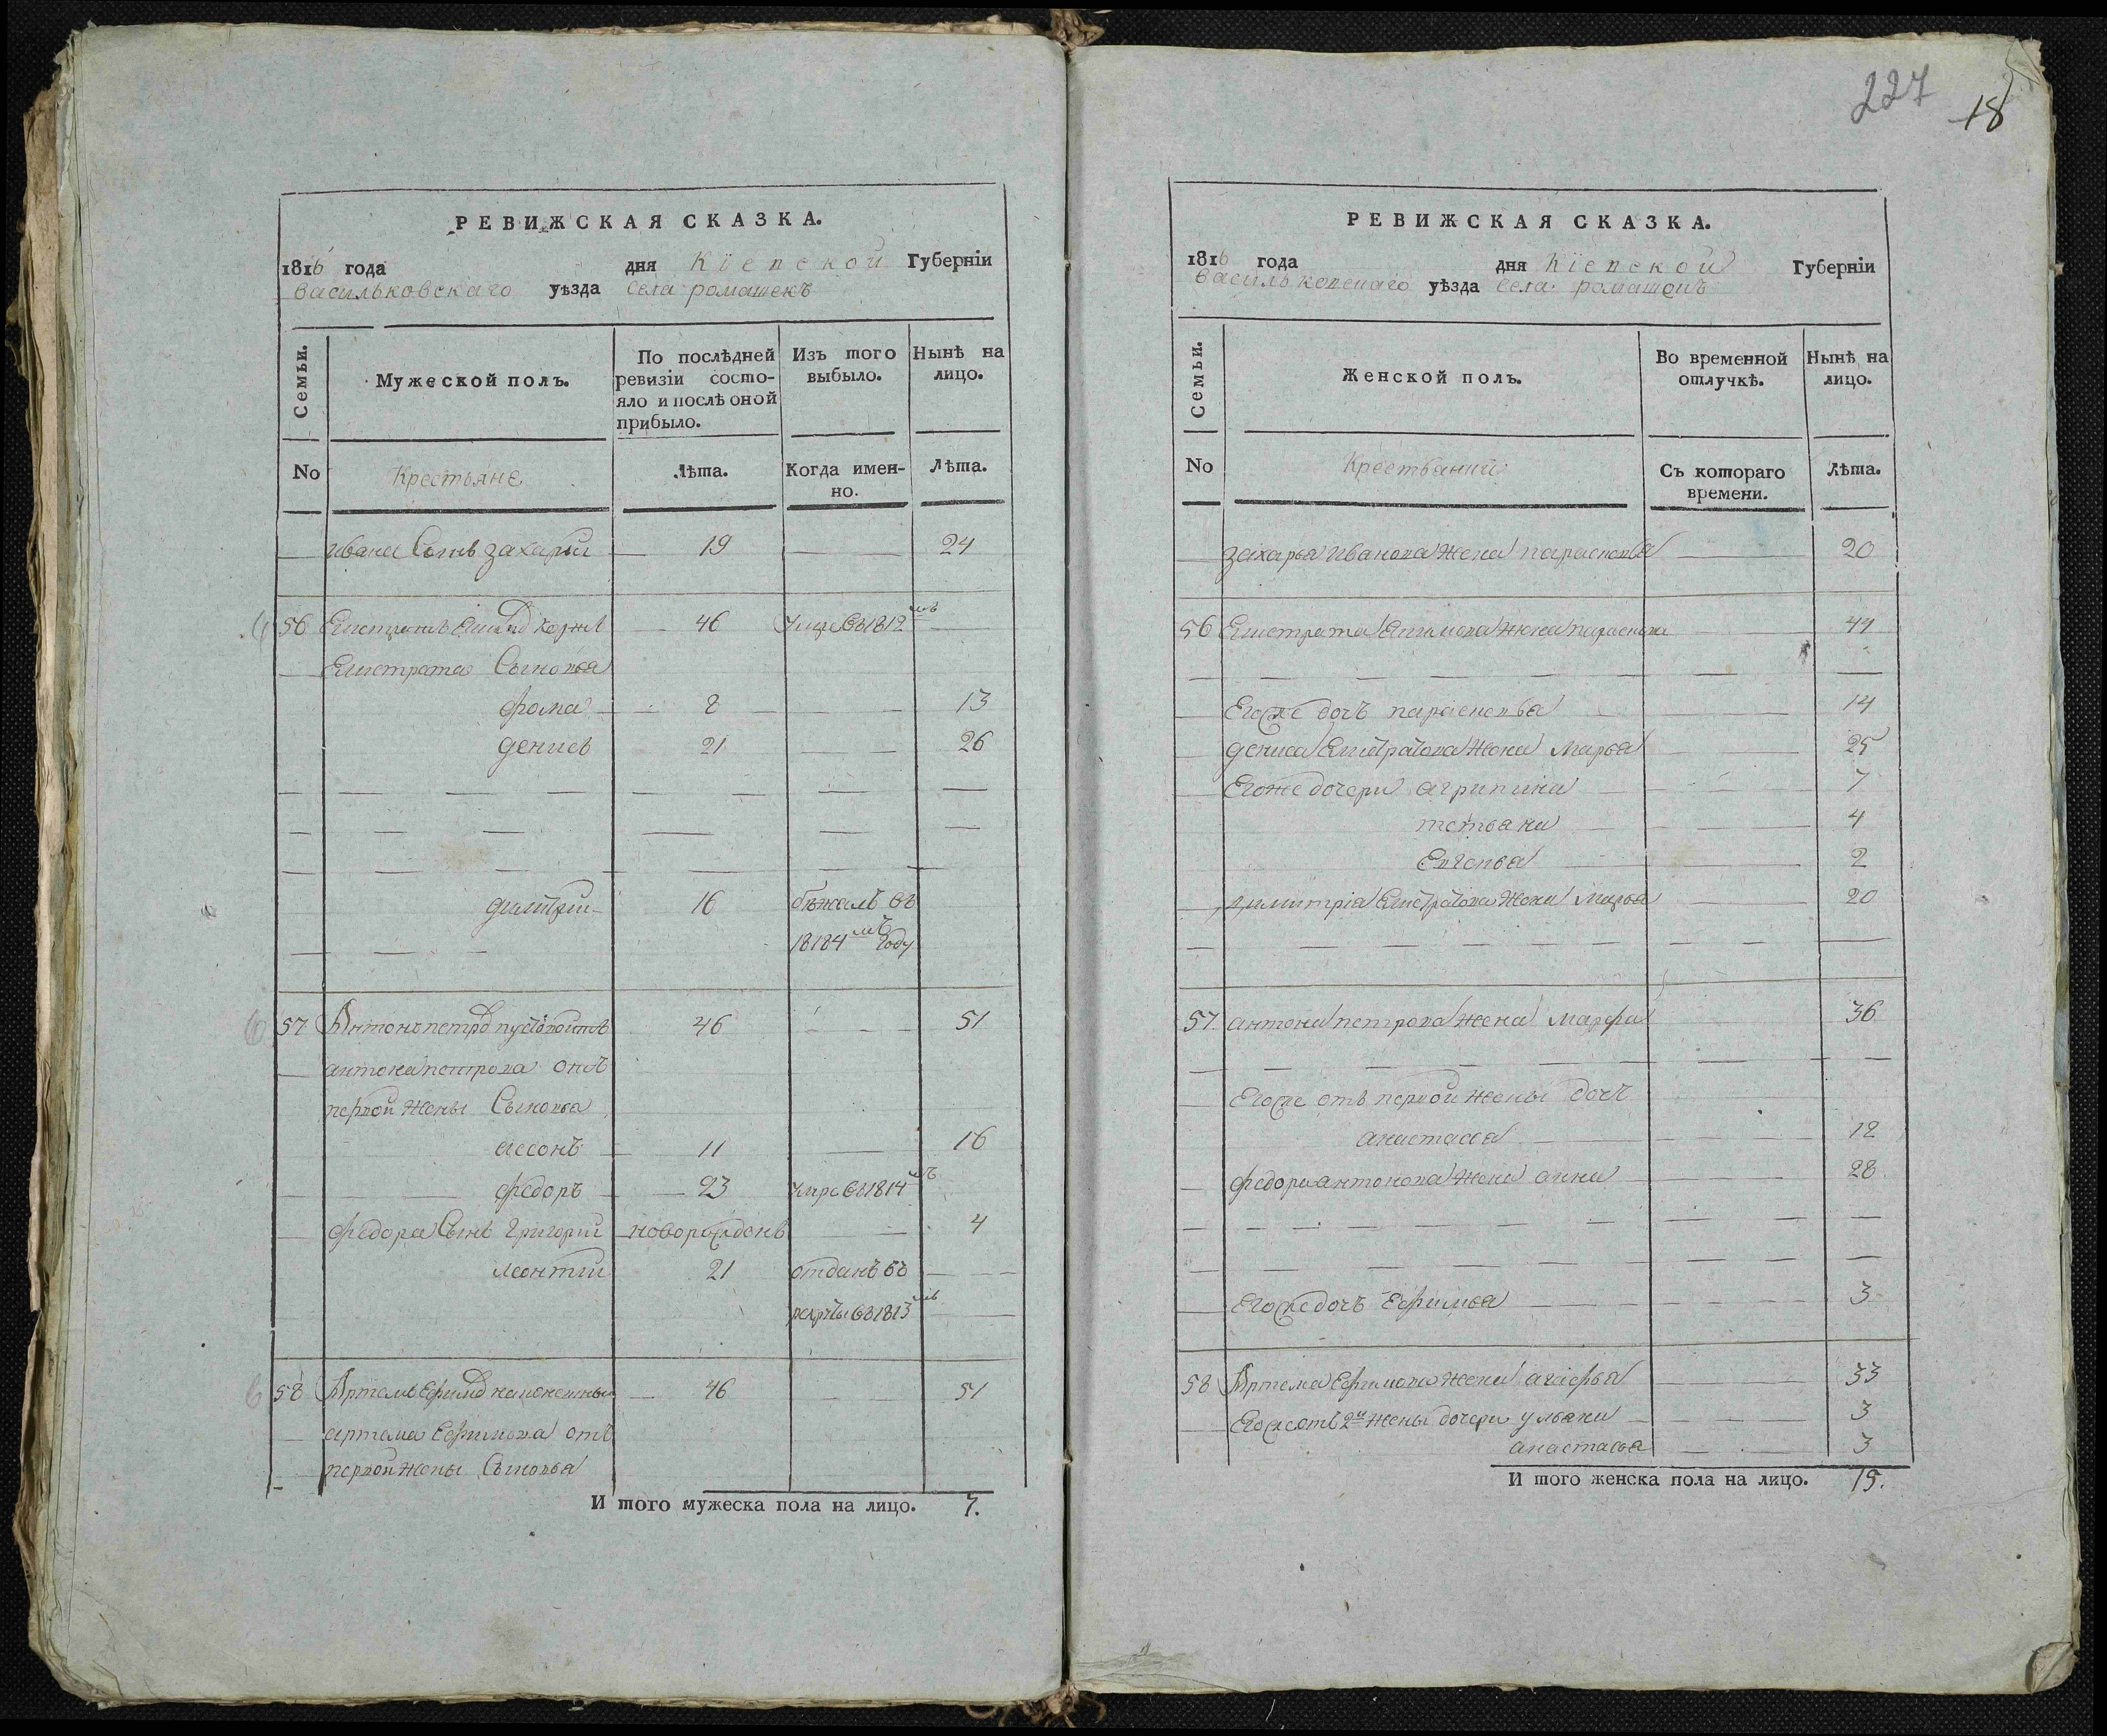 РЕВИЖСКАЯ СКАЗКА.
1816 года дня Кіевской Губерніи
Васильковскаго уѣзда Села ромашекъ
Семьи.
Мужеской полъ.
По послѣдней ревизіи состо-
яло и послѣ оной
прибыло.
Изъ того выбыло.
Нынѣ на лицо.
No
Крестьяне
Лѣта.
Когда имен-
но.
Лѣта.
ивана Сынъ захарий 19 24
56 46 Умре въ 1812мъ
Елистрата Сыновья
фома 8 13
денисъ 21 26
дмитрий 16 бѣжалъ въ
18184мъ году
57 Антонъ петровъ 46 51
антона петрова отъ
первой жены Сыновья
иасонъ 11 16
федоръ 23 умре въ 1814мъ
федора Сынъ григорий новорожденъ 4
леонтий 21 отданъ въ
рекруты въ 1813мъ
58 Артемъ Ефимовъ 46 51
артема Ефимова отъ
первой жены Сыновья
И того мужеска пола на лицо. 7.
227
18
РЕВИЖСКАЯ СКАЗКА.
1816 года дня Кіевской Губерніи
Васильковскаго уѣзда Села ромашекъ
Семьи.
Женской полъ.
Во временной отлучкѣ.
Нынѣ на лицо.
No
Съ котораго времени.
Лѣта.
захарья иванова жена парасковья 20
56 Елистрата жена парасковья 44
Егоже дочъ парасковья 14
дениса Елистратова жена Марья 25
Егоже дочери агрипина 7
тетьяна 4
2
димитрія Елистратова жена Марья 20
57 антона петрова жена марфа 36
Егоже отъ первой жены дочъ
анастасья 12
федора антонова жена анна 28
Егоже дочъ Ефимья 3
58 Артема Ефимова жена агафья 33
Егоже отъ 2й жены дочери ульяна 3
анастасья 3
И того женска пола на лицо. 15.